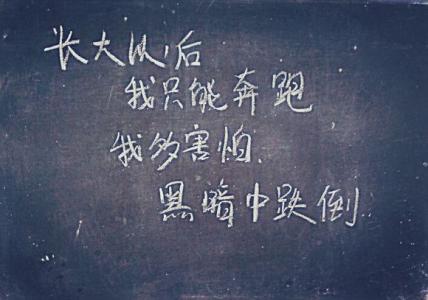 长大以后
我只能奔跑
我多害怕
黑暗中跌倒